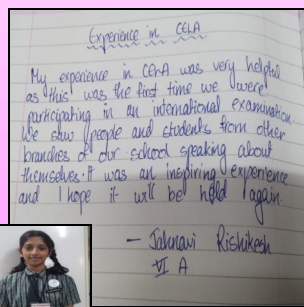 Experience in CELA
My experience in CELA was very helpful
as this was the first time we were
participating in an international examination.
We saw people and students from other
branches of our school speaking about
themselves. It was an inspiring experience
and I hope it will be held again.
- Jahnavi Rishikesh
VI A